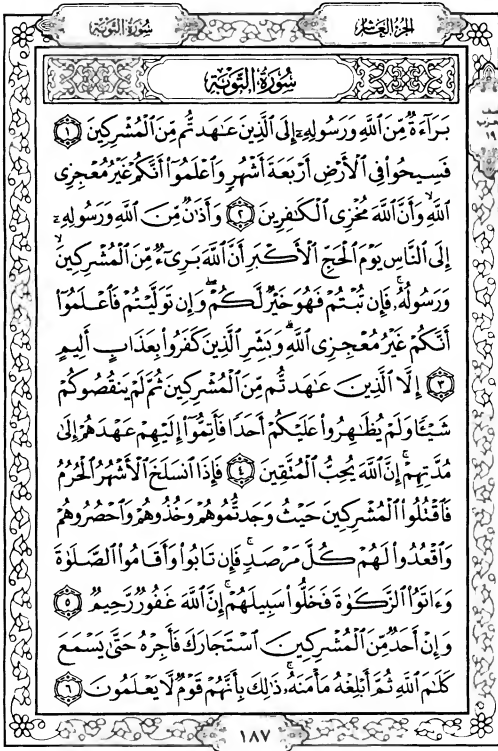 سُورَةُ التَّوْبَةِ
الجُزْءُ العَاشِرُ
سُورَةُ التَّوْبَةِ
بَرَآءَةٌ مِّنَ ٱللَّهِ وَرَسُولِهِۦٓ إِلَى ٱلَّذِينَ عَٰهَدتُّم مِّنَ ٱلْمُشْرِكِينَ ١
فَسِيحُوا۟ فِى ٱلْأَرْضِ أَرْبَعَةَ أَشْهُرٍ وَٱعْلَمُوٓا۟ أَنَّكُمْ غَيْرُ مُعْجِزِى
ٱللَّهِ ۙ وَأَنَّ ٱللَّهَ مُخْزِى ٱلْكَٰفِرِينَ ٢ وَأَذَٰنٌ مِّنَ ٱللَّهِ وَرَسُولِهِۦٓ
إِلَى ٱلنَّاسِ يَوْمَ ٱلْحَجِّ ٱلْأَكْبَرِ أَنَّ ٱللَّهَ بَرِىٓءٌ مِّنَ ٱلْمُشْرِكِينَ ۙ
وَرَسُولُهُۥ ۚ فَإِن تُبْتُمْ فَهُوَ خَيْرٌ لَّكُمْ ۖ وَإِن تَوَلَّيْتُمْ فَٱعْلَمُوٓا۟
أَنَّكُمْ غَيْرُ مُعْجِزِى ٱللَّهِ ۗ وَبَشِّرِ ٱلَّذِينَ كَفَرُوا۟ بِعَذَابٍ أَلِيمٍ
٣ إِلَّا ٱلَّذِينَ عَٰهَدتُّم مِّنَ ٱلْمُشْرِكِينَ ثُمَّ لَمْ يَنقُصُوكُمْ
شَيْـًٔا وَلَمْ يُظَٰهِرُوا۟ عَلَيْكُمْ أَحَدًا فَأَتِمُّوٓا۟ إِلَيْهِمْ عَهْدَهُمْ إِلَىٰ
مُدَّتِهِمْ ۚ إِنَّ ٱللَّهَ يُحِبُّ ٱلْمُتَّقِينَ ٤ فَإِذَا ٱنسَلَخَ ٱلْأَشْهُرُ ٱلْحُرُمُ
فَٱقْتُلُوا۟ ٱلْمُشْرِكِينَ حَيْثُ وَجَدتُّمُوهُمْ وَخُذُوهُمْ وَٱحْصُرُوهُمْ
وَٱقْعُدُوا۟ لَهُمْ كُلَّ مَرْصَدٍ ۚ فَإِن تَابُوا۟ وَأَقَامُوا۟ ٱلصَّلَوٰةَ
وَءَاتَوُا۟ ٱلزَّكَوٰةَ فَخَلُّوا۟ سَبِيلَهُمْ ۚ إِنَّ ٱللَّهَ غَفُورٌ رَّحِيمٌ ٥
وَإِنْ أَحَدٌ مِّنَ ٱلْمُشْرِكِينَ ٱسْتَجَارَكَ فَأَجِرْهُ حَتَّىٰ يَسْمَعَ
كَلَٰمَ ٱللَّهِ ثُمَّ أَبْلِغْهُ مَأْمَنَهُۥ ۚ ذَٰلِكَ بِأَنَّهُمْ قَوْمٌ لَّا يَعْلَمُونَ ٦
١٩
١٨٧